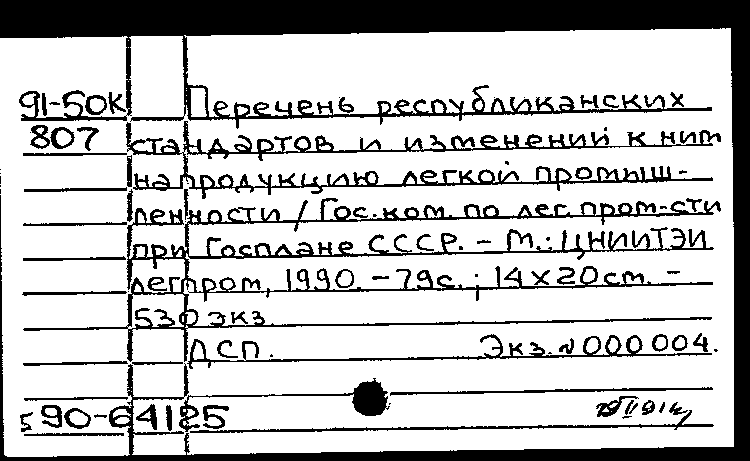 91-50К Перечень республиканских
807 стандартов и изменений к ним
на продукцию легкой промыш-
ленности / Гос. ком. по лег. пром-сти
при Госплане СССР. - М.: ЦНИИТЭИ
легпром, 1990. - 79с.; 14х20см. -
530 экз.
ДСП. Экз. № 000 004.
5 90-64125